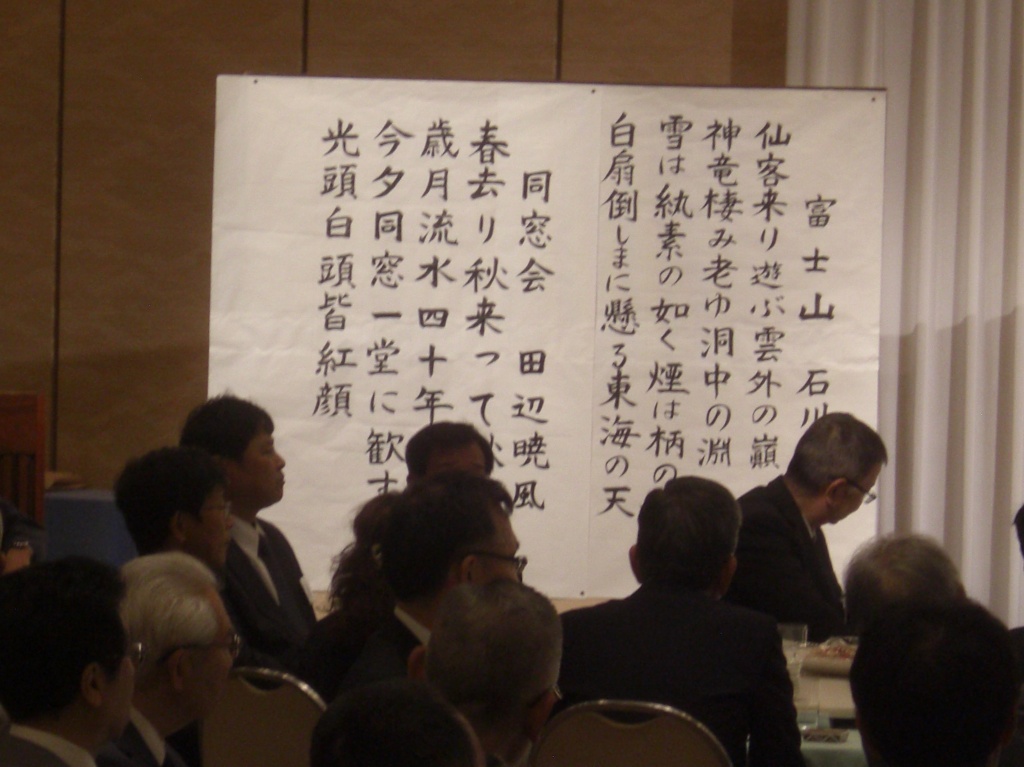 富士山 石川
仙客来り遊ぶ雲外の巓
神竜棲み老ゆ洞中の淵
雪は紈素の如く煙は柄の
白扇倒しまに懸る東海の天
同窓会 田辺暁風
春去り秋来って
歳月流水四十年
今夕同窓一堂に歓す
光頭白頭皆紅顔